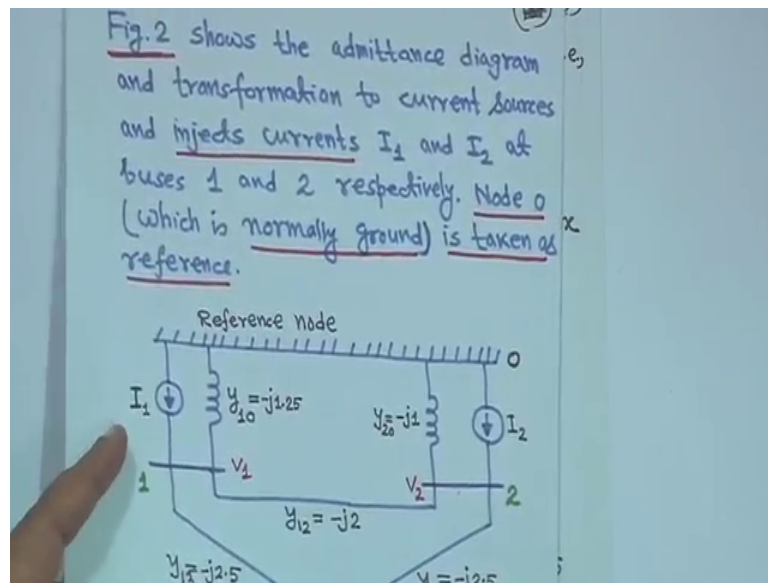 Fig.2 shows the admittance diagram
and transformation to current sources
and injects currents I1 and I2 at
buses 1 and 2 respectively. Node 0
(which is normally ground) is taken as
reference.
e,
x
Reference node
0
I1
y10 = -j1.25
y20 = -j1
I2
1
V1
V2
2
y12 = -j2
= -j2.5
= -j2.5